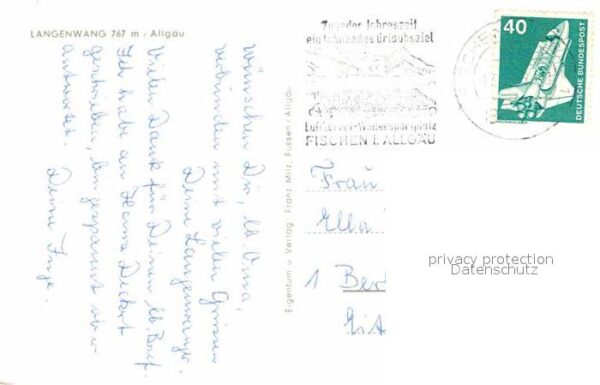 LANGENWANG 767 m / Allgäu
wünschen Dir, lb. Oma,
verbunden mit vielen Grüssen
Deine Langenwanger.
Vielen Dank für Deinen lb. Brief.
Ich habe an Herrn Deckert
geschrieben, bin gespannt ob er
antwortet.
Deine Inge.
Eigentum u. Verlag: Franz Milz, Füssen / Allgäu
Zu jeder Jahreszeit
ein lohnendes Urlaubsziel
Luftkurort-Wintersportplatz
FISCHEN I. ALLGÄU
40
DEUTSCHE BUNDESPOST
Frau
Ella
1 Ber
privacy protection
Datenschutz